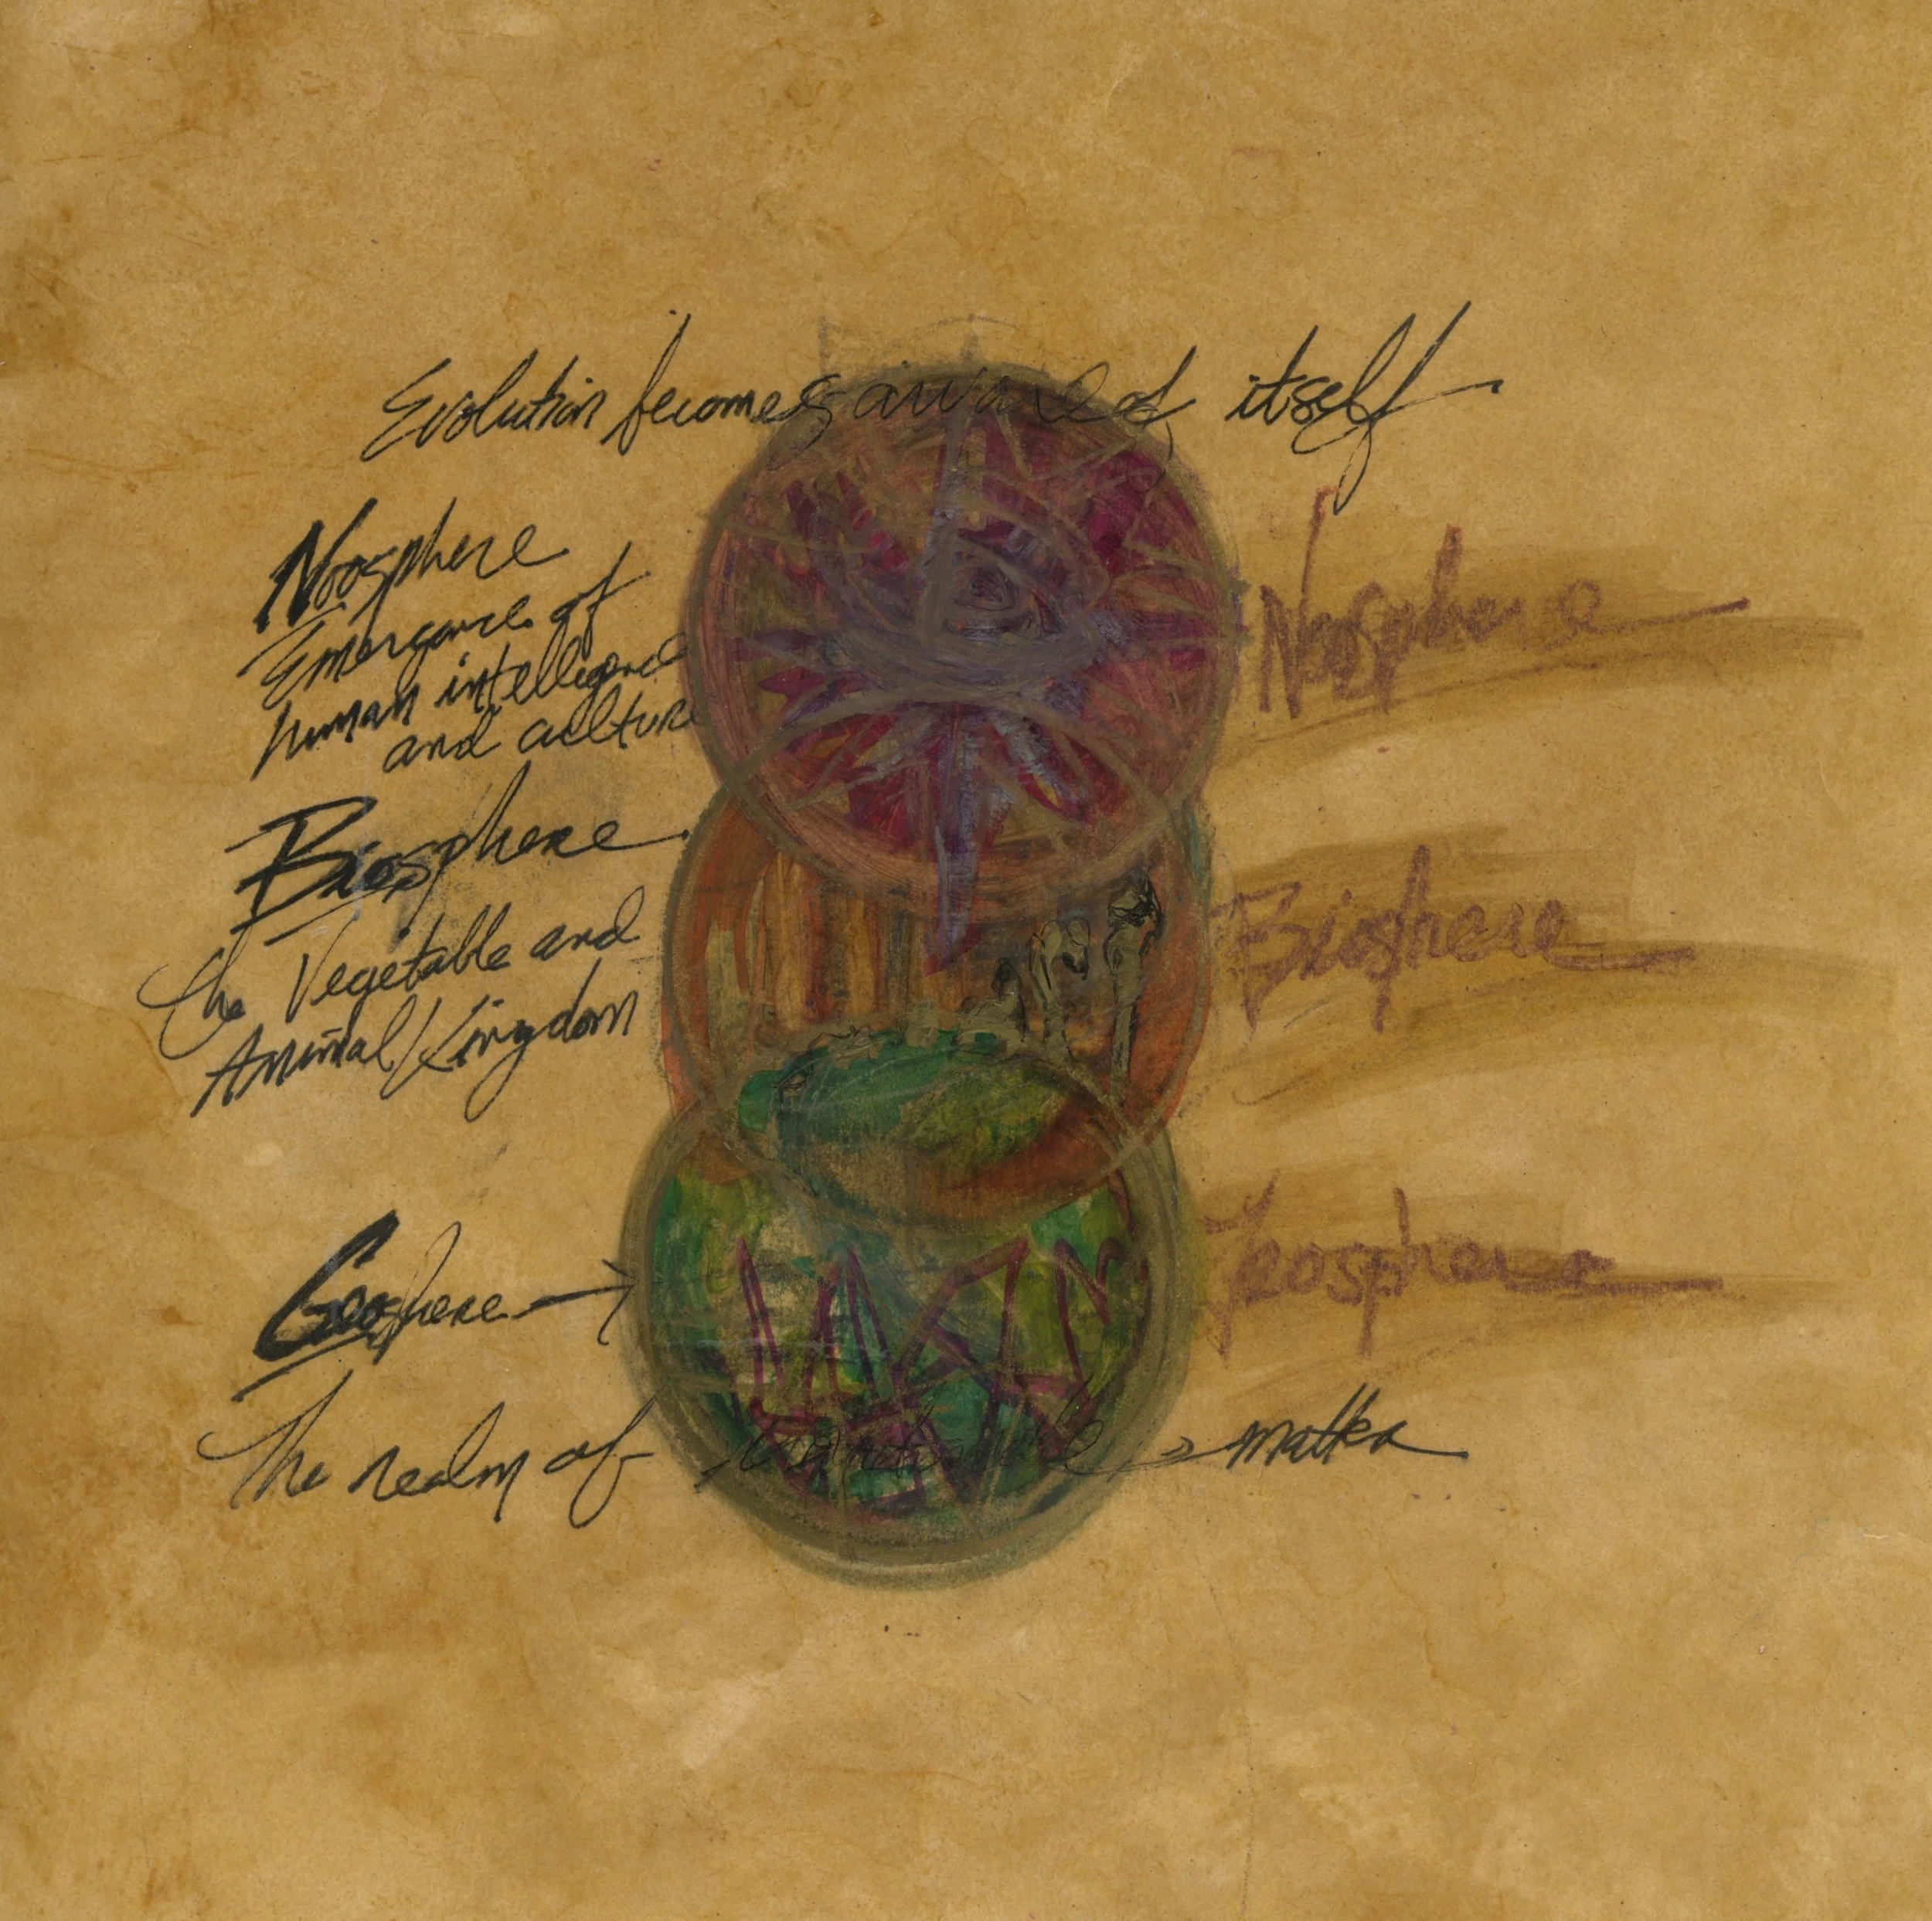 Evolution becomes aware of itself
Noosphere
Emergance of
human intellegence
and culture
Noosphere
Biosphere
the Vegetable and
Animal Kingdom
Biosphere
Geosphere
The realm of inanimate matter
Geosphere